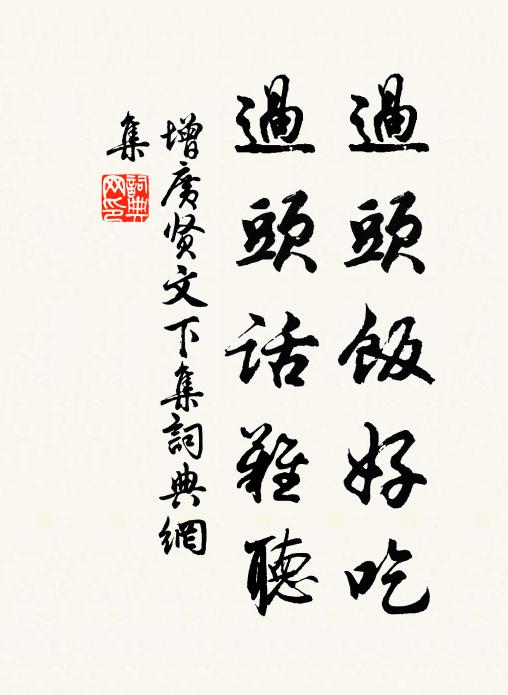 過頭飯好吃
過頭話難聽
增广贤文下集詞典網
集
詞典网印